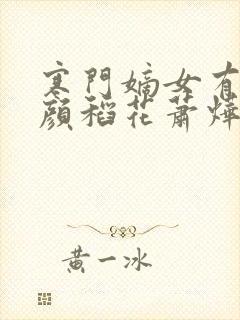 寒門嫡女有
顏稻花蕭燁
黃一冰